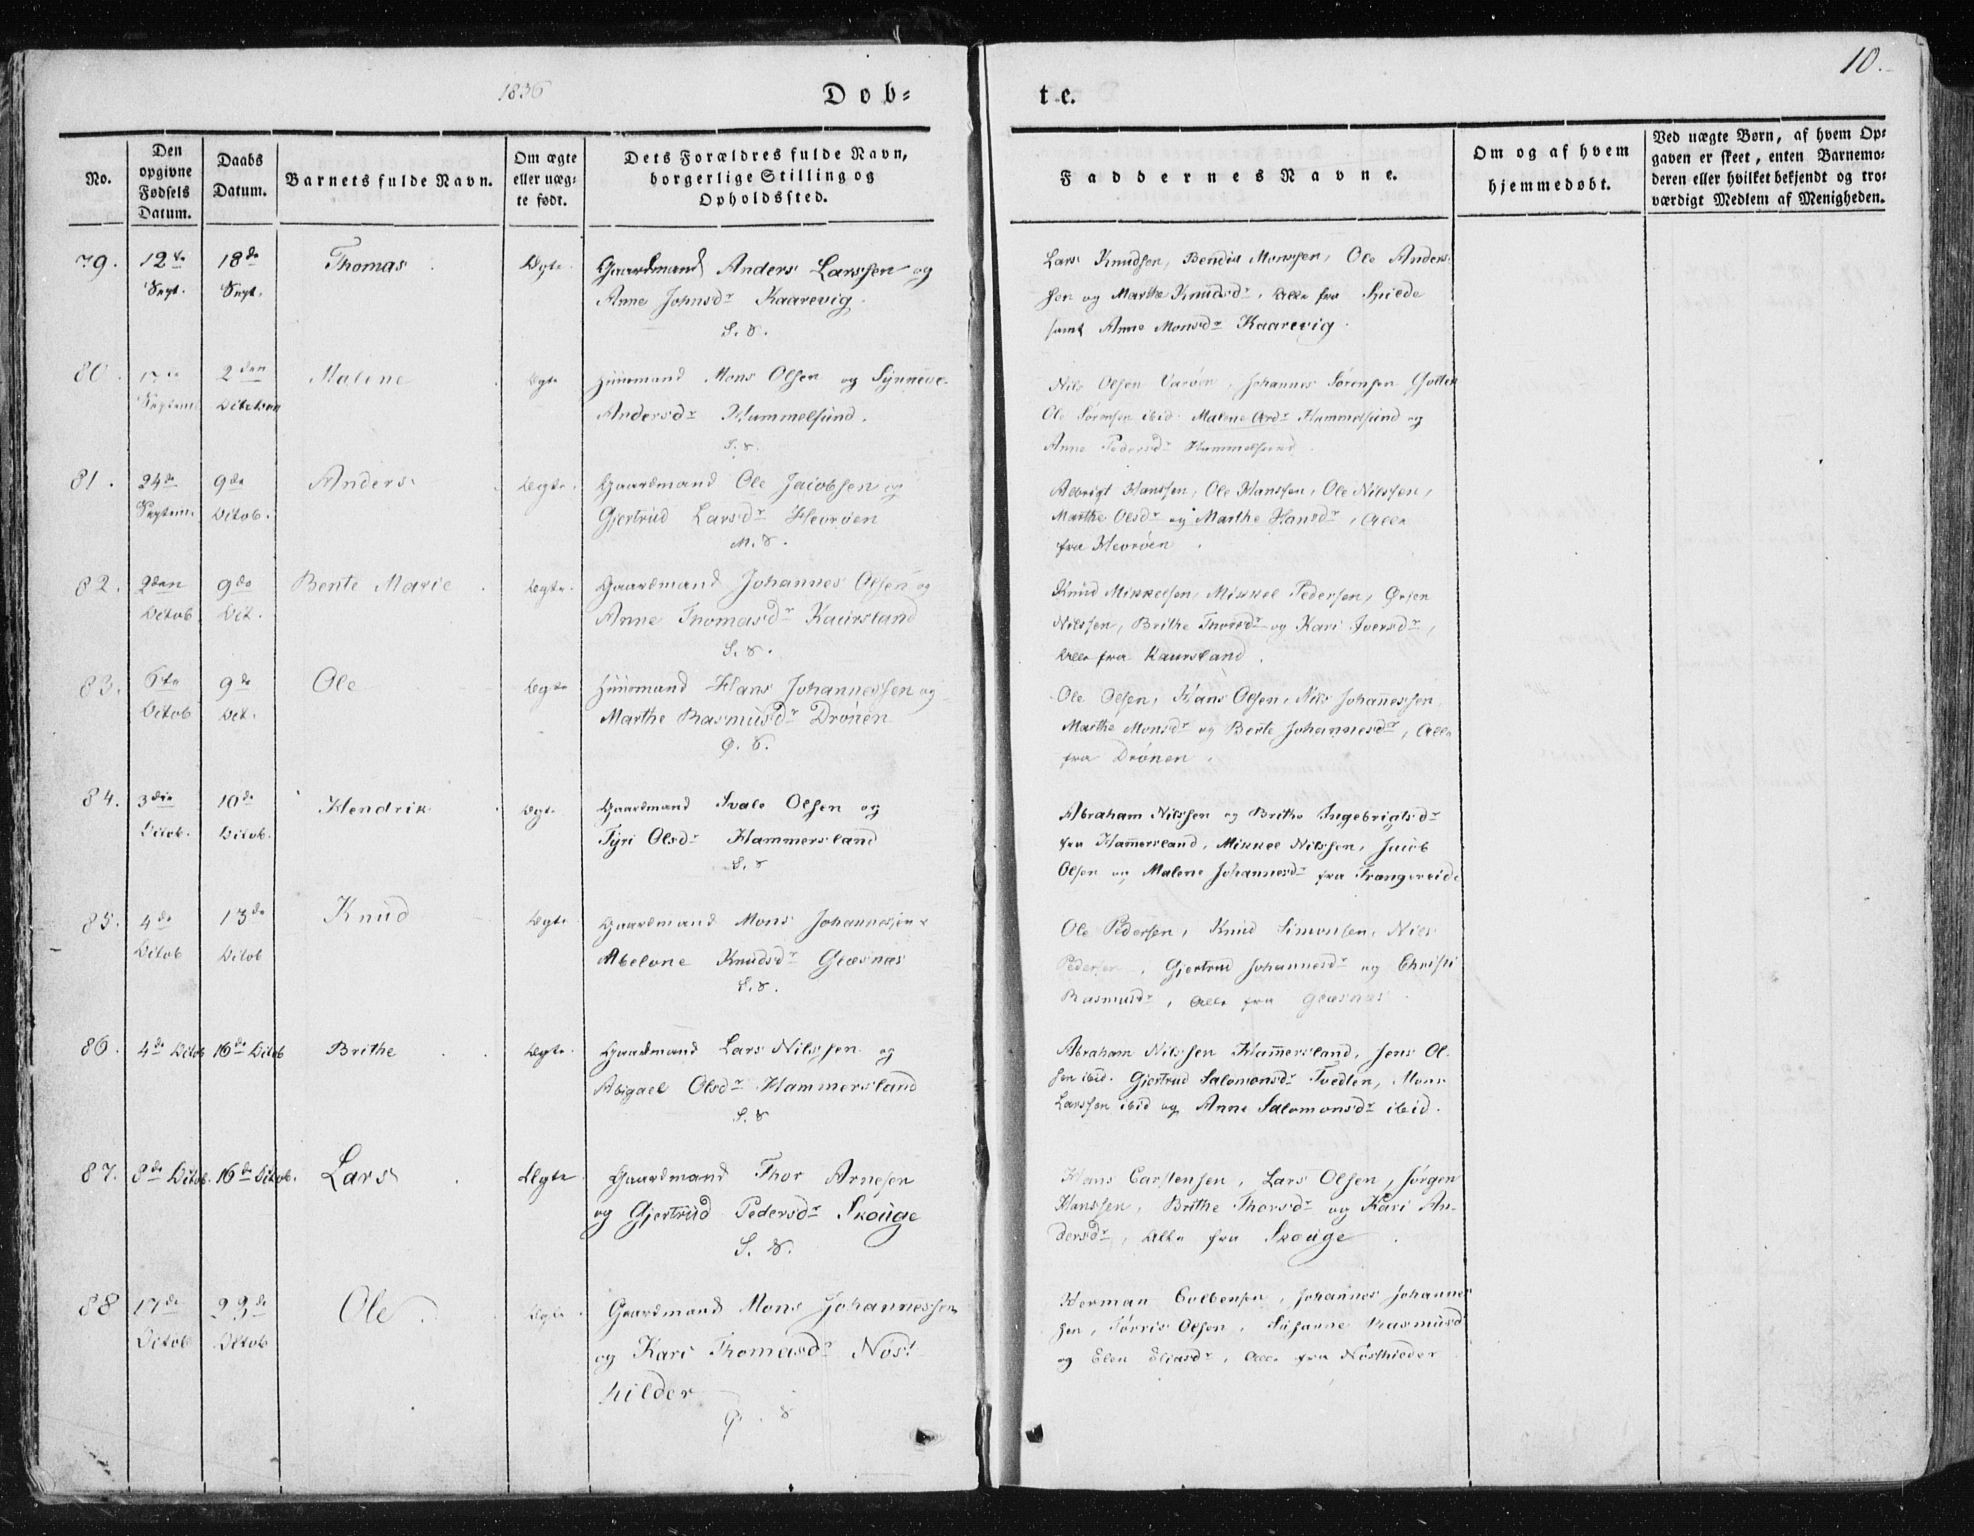 1836
Dob=
te.
10.
No.
Den opgivne Fødsels Datum.
Daabs Datum.
Barnets fulde Navn.
Om ægte eller uæg-te født.
Dets Forældres fulde Navn, borgerlige Stilling og Opholdssted.
Faddernes Navne.
Om og af hvem hjemmedøbt.
Ved uægte Børn, af hvem Op-gaven er skeet, enten Barnemo-deren eller hvilket bekjendt og tro-værdigt Medlem af Menigheden.
79. 12te Sept. 18de Sept. Thomas Ægte
Gaardmand Anders Larssen og
Anne Johnsdr Kaarevig
S. S.
Lars Knudsen, Monssen, Ole Anders-
sen og Marthe Knudsdr, Alle fra Spilde
samt Anne Monsdr Kaarevig.
80. Septem. 2den Octobr Malene Ægte
Huusmand Mons Olsen og Synneve
Andersdr Hummelsund.
S. S.
Nils Olsen Varöen, Johannes Sørensen Golten
Ole Sørensen ibid. Malene Hummelsund og
Anne Pedersdr Hummelsund
81. 24de Septem. 9de Octob. Anders Ægte
Gaardmand Ole Jacobsen og
Gjertrud Larsdr Hevröen
M. S.
Albrigt Hanssen, Ole Hanssen, Ole Nilssen,
Marthe Olsdr og Marthe Hansdr, Alle
fra Hevröen
82. 2den Octob 9de Oct. Bente Marie Ægte
Gaardmand Johannes Olsen og
Anne Thomasdr Kaursland
S. S.
Knud Mikkelsen, Mikkel Pedersen,
Nilssen, Brithe Thorsdr og Kari Iversdr,
Alle fra Kaursland.
83. 6te Octob 9de Oct. Ole Ægte
Huusmand Hans Johannessen og
Marthe Rasmusdr Drönen
Ø. S.
Ole Olsen, Hans Olsen, Nils Johannessen
Marthe Monsdr og Berte Johannesdr, Alle
fra Drönen.
84. 3die Octob. 10de Octob. Hendrik Ægte
Gaardmand Svale Olsen og
Tyri Olsdr Hammersland
S. S
Abraham Nilssen og Brithe Ingebrigtsdr
fra Hammersland, Mikkel Nilssen, Jacob
Olsen og Malene Johannesdr fra Trangereide
85. 4de Octob 13de Octob Knud Ægte
Gaardmand Mons Johannessen
Abelone Knudsdr Glæsnæs
S. S.
Ole Pedersen, Knud Simonsen, Nils
Pedersen, Gjertrud Johannesdr og Christi
Rasmusdr, Alle fra Glæsnæs
86. 4de Octob 16de Octob Brithe Ægte
Gaardmand Lars Nilssen og
Abigael Olsdr Hammersland
S. S
Abraham Nilssen Hammersland, Jens Ol-
sen ibid. Gjertrud Salomonsdr Tvedten, Mons
Larssen ibid og Anne Salomonsdr ibid.
87. 8de Octob. 16de Octob. Lars Ægte
Gaardmand Thor Arnesen
og Gjertrud Pedersdr Skouge
S. S.
Hans Carstensen, Lars Olsen, Jørgen
Hanssen, Brithe Thorsdr og Kari An-
dersdr, Alle fra Skouge
88 17de Octob 23de Octob Ole Ægte
Gaardmand Mons Johannessen
og Kari Thomasdr Nöst-
hilder
Ø. S
Herman Colbensen, Johannes Johannes-
sen, Olsen, Susanne Rasmusdr
og Elen Eliasdr, Alle fra